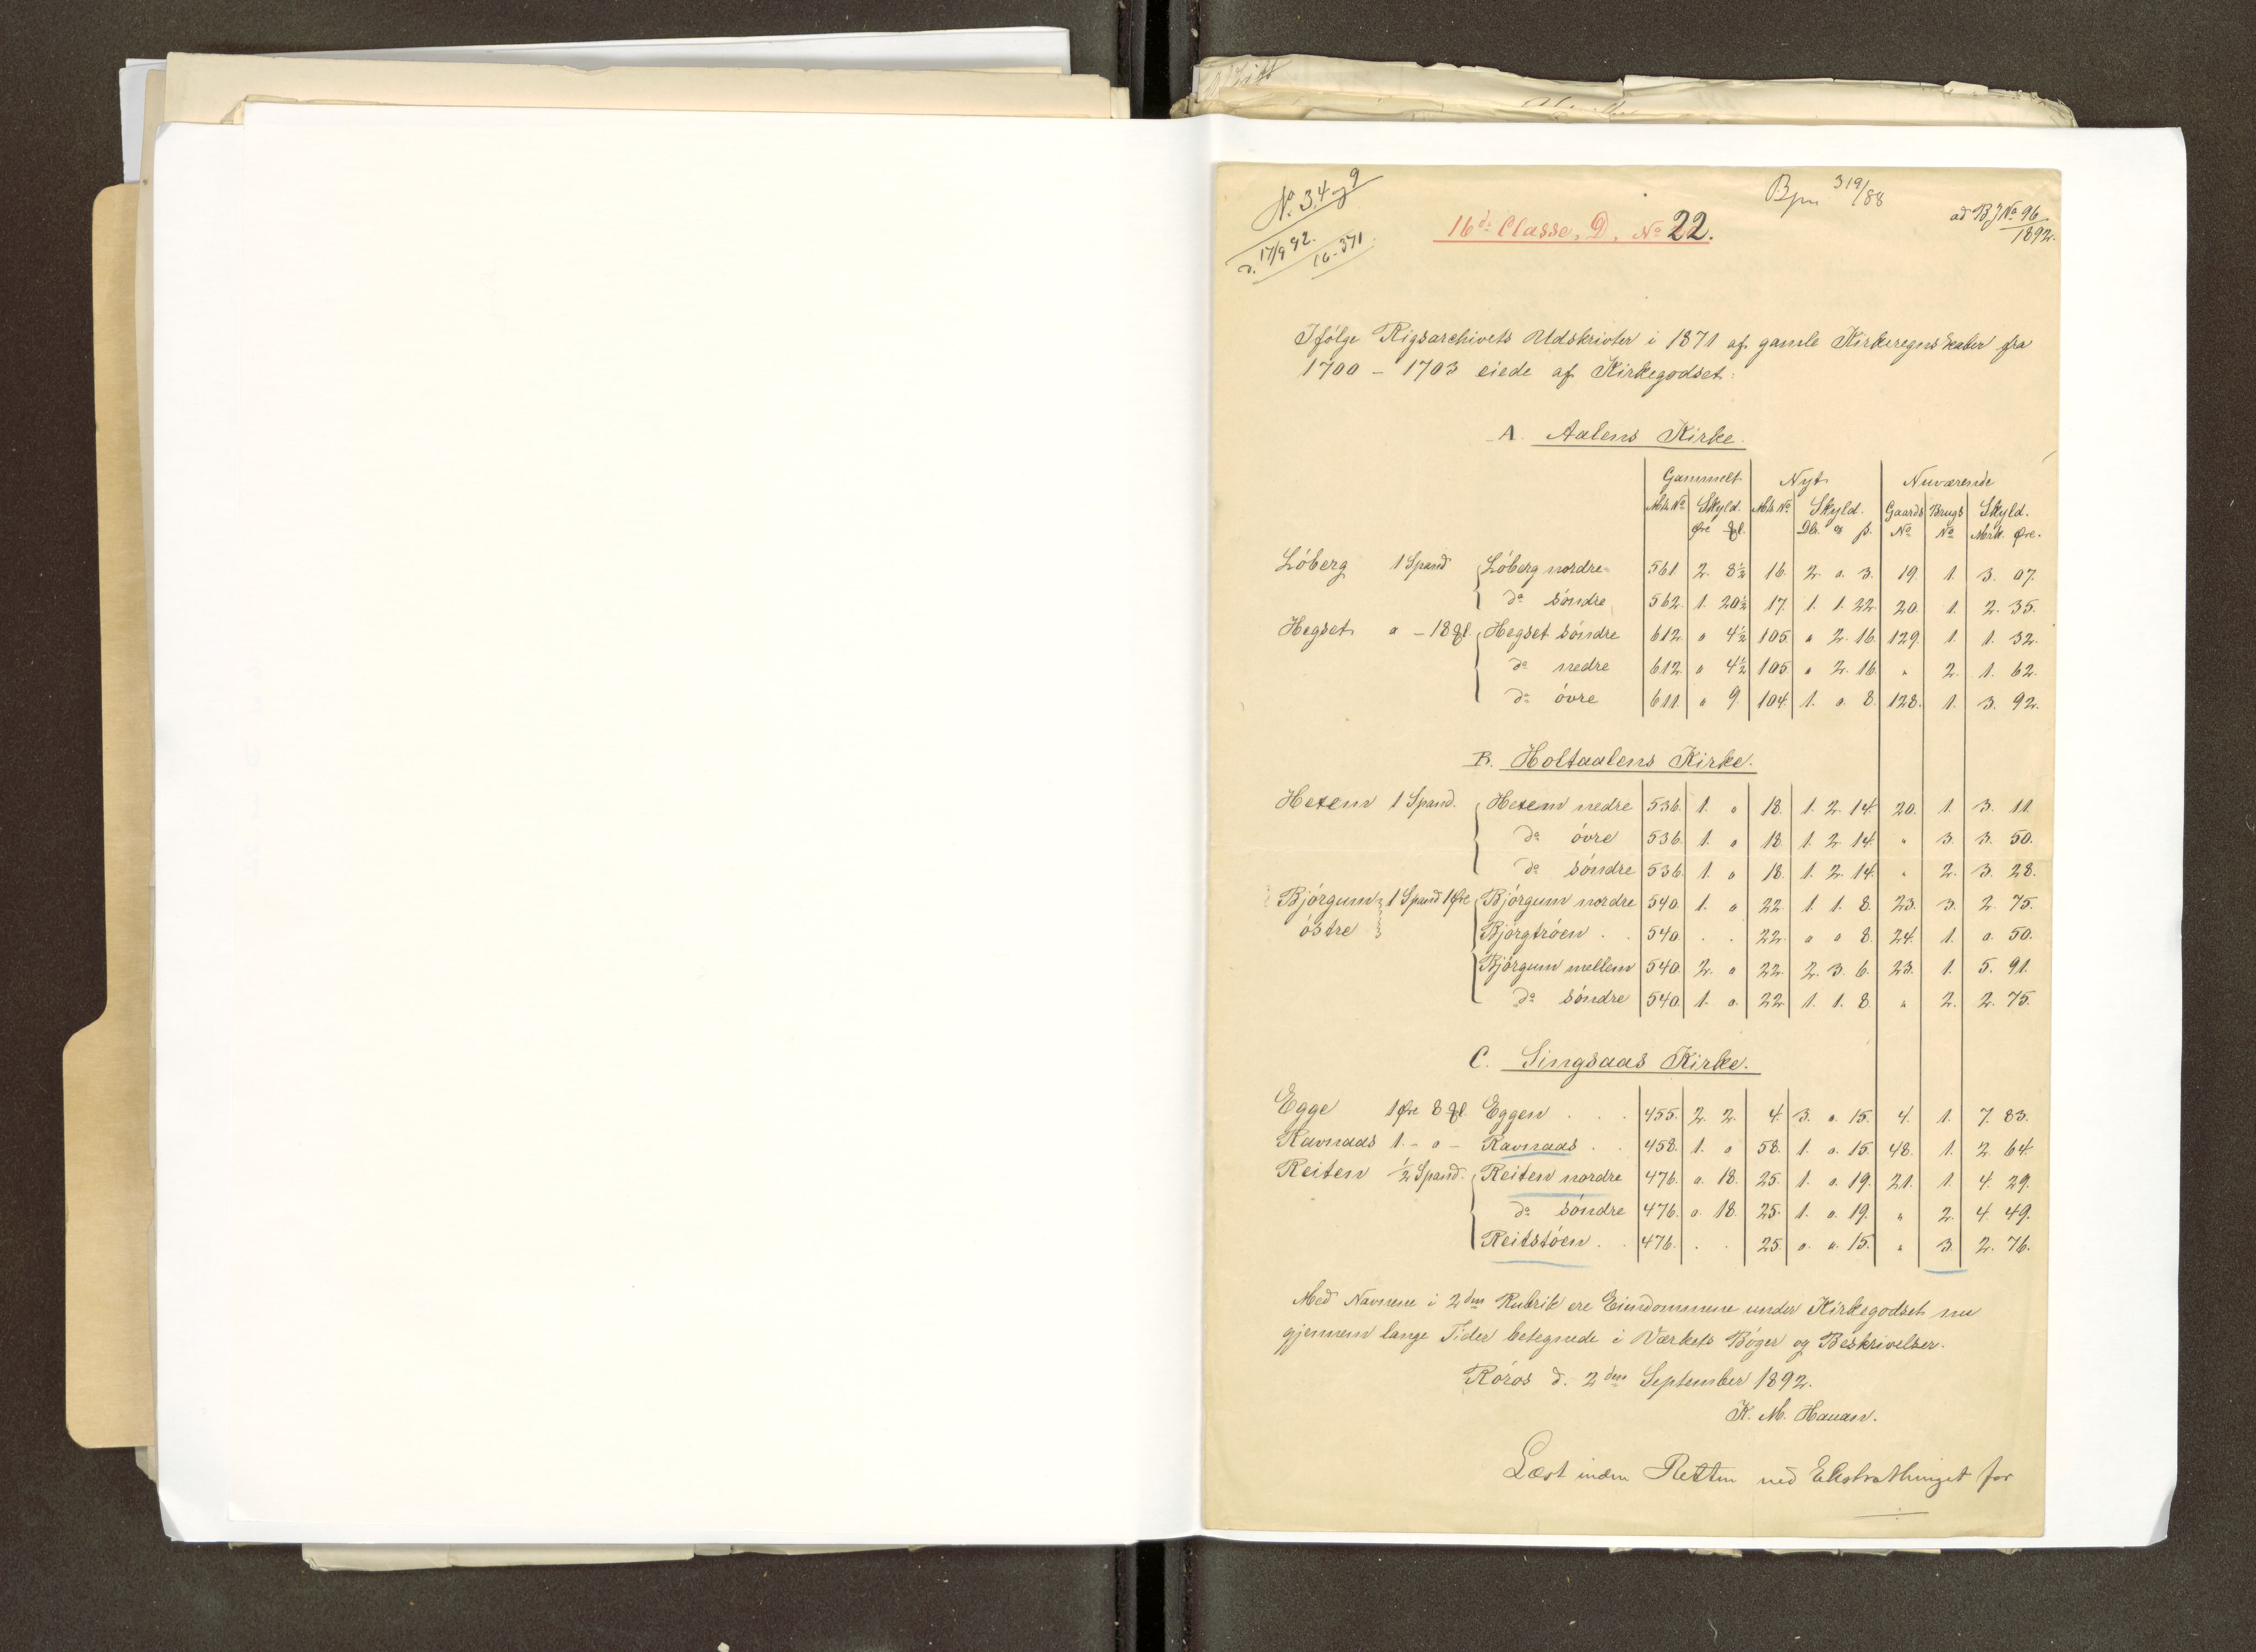 No. 3, 4 og 9
d. 17/9 92.
16-371.
16de Classe, D, No 22.
319/88
ad B J No 96/1892.
Ifólge Rigsarchivets Udskrivter i 1871 af gamle Kirkeregnskaber fra
1700 - 1703 eiede af Kirkegodset:
A. Aalens Kirke.
Gammelt Nyt Nuværende
Mtr. No Skyld. Mtr. No Skyld. Gaards Brugs Skyld.
Øre Dlr. ort ß. No No Mrk. Øre.
Lóberg 1 Spand Lóberg nordre 561. 2. 8½ 16. 2. 0. 3. 19. 1. 3. 07.
do sóndre 562. 1. 20½ 17. 1. 1. 22. 20. 1. 2. 35.
Hegset " - 18 gl. Hegset sóndre 612. " 4½ 105. " 2. 16. 129. 1. 1. 32.
do nedre 612. " 4½ 105. " 2. 16. " 2. 1. 62.
do óvre 611. " 9. 104. 1. 0. 8. 128. 1. 3. 92.
B. Holtaalens Kirke.
Hexem 1 Spand. Hexem nedre 536. 1. " 18. 1. 2. 14. 20. 1. 3. 11.
do óvre 536. 1. " 18. 1. 2. 14. " 3. 3. 50.
do sóndre 536. 1. " 18. 1. 2. 14. " 2. 3. 28.
Bjórgum 1 Spand 1 Øre Bjórgum nordre 540. 1. " 22. 1. 1. 8. 23. 3. 2. 75.
óstre Bjórgtróen . . 540. . . 22. " " 8. 24. 1. 0. 50.
Bjórgum mellem 540. 2. " 22. 2. 3. 6. 23. 1. 5. 91.
do sóndre 540. 1. 0. 22. 1. 1. 8. " 2. 2. 75.
C. Singsaas Kirke.
Egge 1 Øre 8 gl. Eggen . . . 455. 2. 2. 4. 3. 0. 15. 4. 1. 7. 83.
Ravnaas 1. - " - Ravnaas . . 458. 1. " 58. 1. 0. 15. 48. 1. 2. 64.
Reiten ½ Spand. Reiten nordre 476. 0. 18. 25. 1. 0. 19. 21. 1. 4. 29.
do sóndre 476. 0. 18. 25. 1. 0. 19. " 2. 4. 49.
Reitstóen . . 476. . . 25. 0. 0. 15. " 3. 2. 76.
Med Navnene i 2den Rubrik ere Eiendommene under Kirkegodset nu
gjennem lange Tider betegnede i Værkets Bóger og Beskrivelser.
Róros d. 2den September 1892.
K. M. Hauan.
Læst inden Retten ved Ekstrathinget for